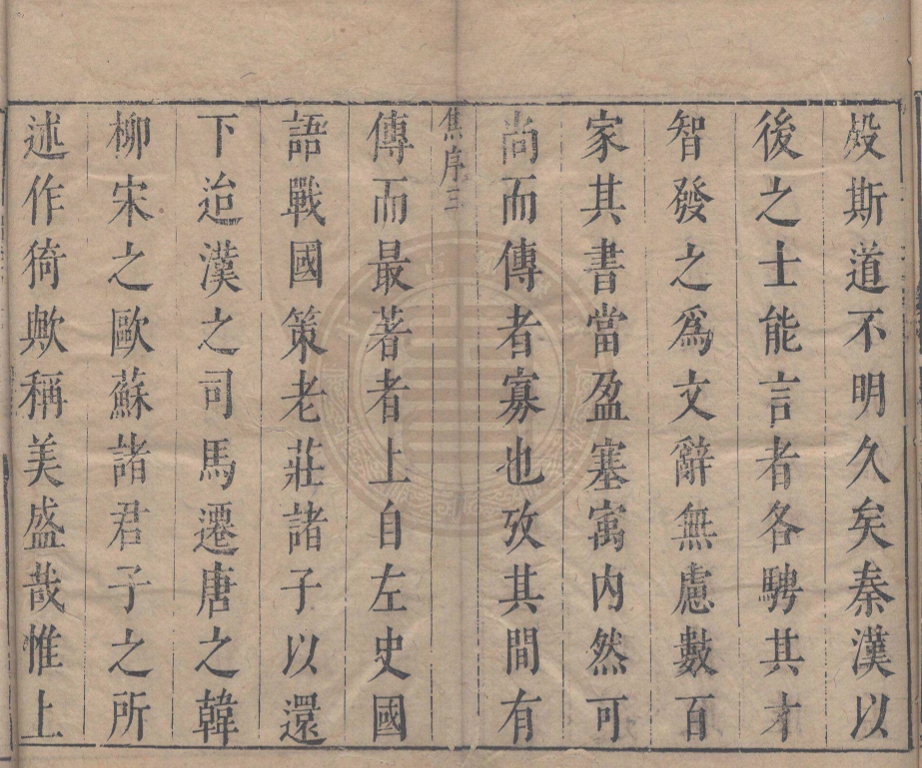 殽斯道不明久矣秦漢以
後之士能言者各騁其才
智發之為文辭無慮數百
家其書當盈塞㝢內然可
尚而傳者寡也攷其間有
焦序三
傳而最著者上自左史國
語戰國策老莊諸子以還
下迨漢之司馬遷唐之韓
柳宋之歐蘇諸君子之所
述作猗歟稱美盛哉惟上